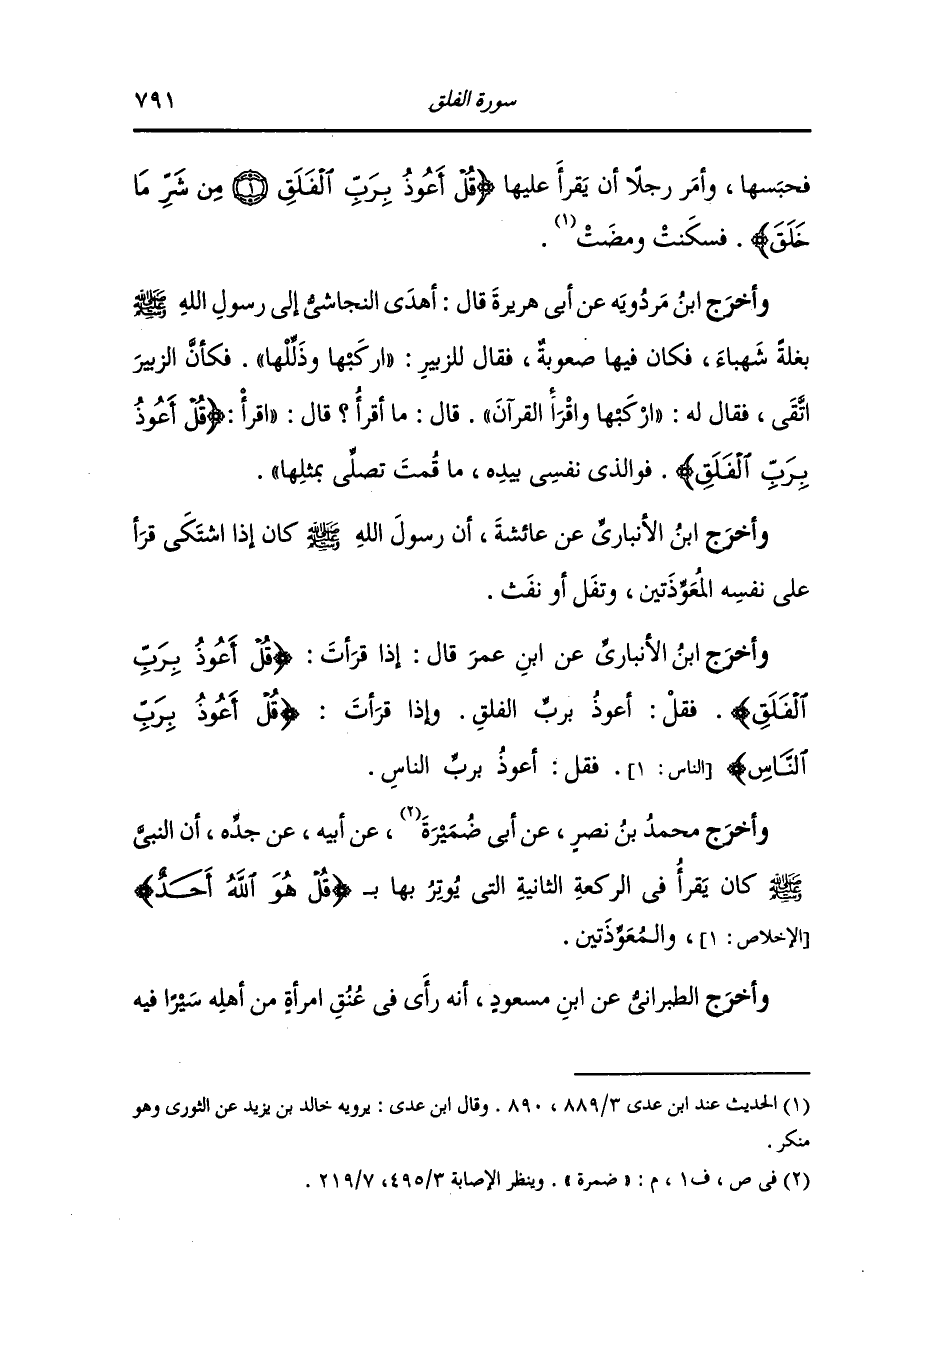 سورة الفلق ٧٩١
فحبَسها ، وأمَر رجلًا أن يَقرأَ عليها ﴿قُلْ أَعُوذُ بِرَبِّ ٱلْفَلَقِ ۝١ مِن شَرِّ مَا
خَلَقَ﴾ . فسكَنتْ ومضَتْ(١) .
وأخرَج ابنُ مَردُويَه عن أبى هريرةَ قال : أهدَى النجاشىُّ إلى رسولِ اللهِ ﷺ
بغلةً شَهباءَ ، فكان فيها صعوبةٌ ، فقال للزبيرِ : «اركَبْها وذَلِّلْها» . فكأنَّ الزبيرَ
اتَّقَى ، فقال له : «ارْكَبْها واقْرَأ القرآنَ» . قال : ما أقرأُ ؟ قال : «اقرأْ : ﴿قُلْ أَعُوذُ
بِرَبِّ ٱلْفَلَقِ﴾ . فوالذى نفسِى بيدِه ، ما قُمتَ تصلِّى بمثلِها» .
وأخرَج ابنُ الأنبارىِّ عن عائشةَ ، أن رسولَ اللهِ ﷺ كان إذا اشتَكَى قرَأ
على نفسِه المُعَوِّذَتين ، وتفَل أو نفَث .
وأخرَج ابنُ الأنبارىِّ عن ابنِ عمرَ قال : إذا قرَأتَ : ﴿قُلْ أَعُوذُ بِرَبِّ
ٱلْفَلَقِ﴾ . فقلْ : أعوذُ بربِّ الفلقِ . وإذا قرَأتَ : ﴿قُلْ أَعُوذُ بِرَبِّ
ٱلنَّاسِ﴾ [الناس : ١] . فقل : أعوذُ بربِّ الناسِ .
وأخرَج محمدُ بنُ نصرٍ ، عن أبى ضُمَيْرَةَ(٢) ، عن أبيه ، عن جدِّه ، أن النبىَّ
ﷺ كان يَقرأُ فى الركعةِ الثانيةِ التى يُوتِرُ بها بـ ﴿قُلْ هُوَ ٱللَّهُ أَحَـدٌ﴾
[الإخلاص : ١] ، والمُعَوِّذَتين .
وأخرَج الطبرانىُّ عن ابنِ مسعودٍ ، أنه رأَى فى عُنُقِ امرأةٍ من أهلِه سَيْرًا فيه
(١) الحديث عند ابن عدى ٨٨٩/٣ ، ٨٩٠ . وقال ابن عدى : يرويه خالد بن يزيد عن الثورى وهو
منكر .
(٢) فى ص ، ف١ ، م : « ضمرة » . وينظر الإصابة ٤٩٥/٣ ، ٢١٩/٧ .